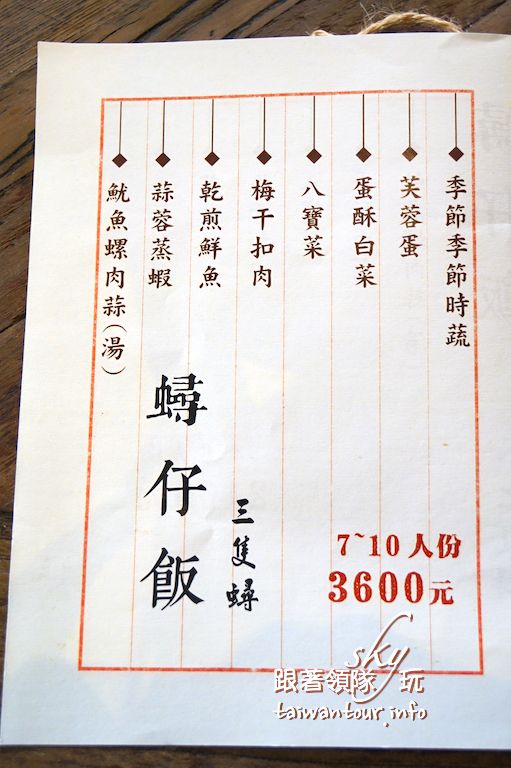 季節季節時蔬
芙蓉蛋
蛋酥白菜
八寶菜
梅干扣肉
乾煎鮮魚
蒜蓉蒸蝦
魷魚螺肉蒜(湯)
三隻蟳
蟳仔飯
7~10人份
3600元
sky
跟著領隊玩
taiwantour.info